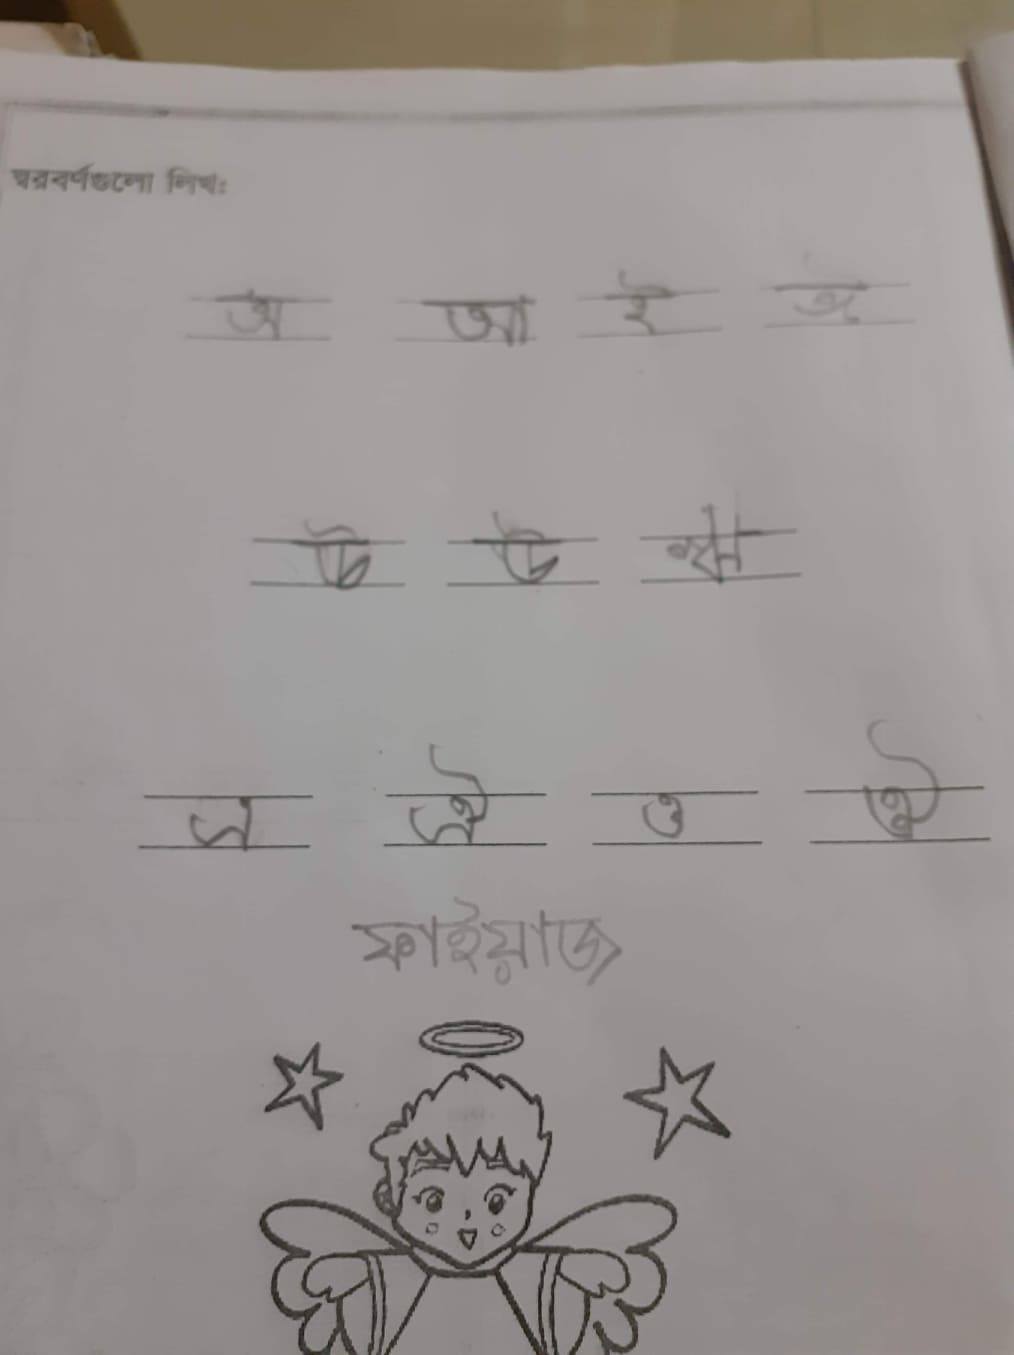 স্বরবর্ণগুলো লিখ:
অ আ ই ঈ
উ ঊ ঋ
এ ঐ ও ঔ
ফাইয়াজ